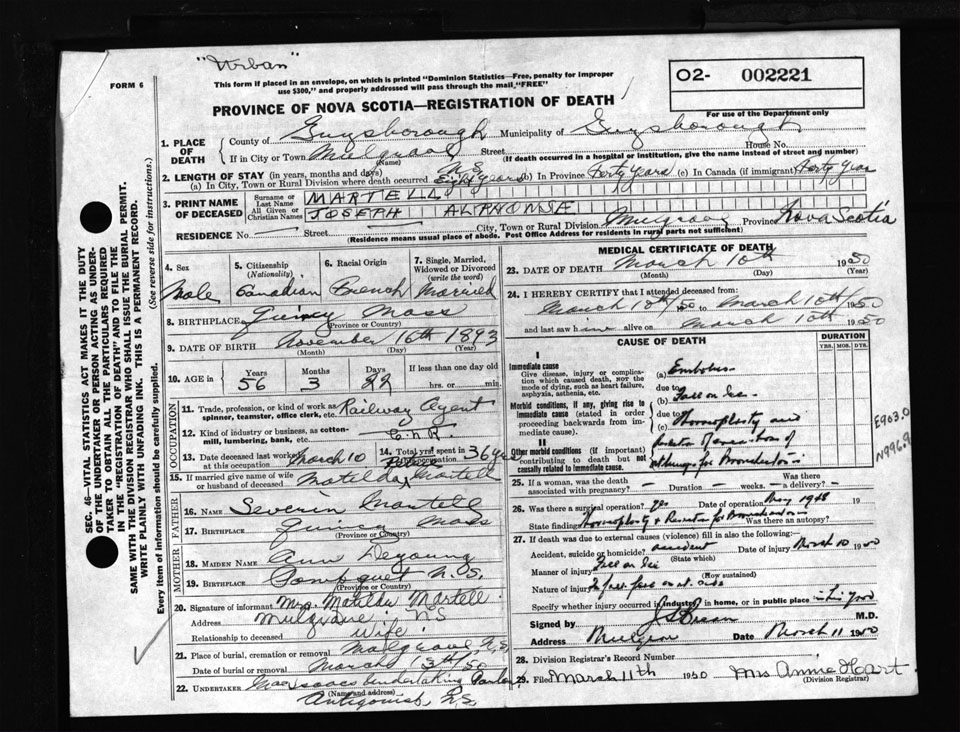 "Urban"
FORM 6
This form if placed in an envelope, on which is printed "Dominion Statistics—Free, penalty for improper
use $300," and properly addressed will pass through the mail, "FREE"
O2- 002221
For use of the Department only
PROVINCE OF NOVA SCOTIA—REGISTRATION OF DEATH
1. PLACE OF DEATH
County of Guysborough Municipality of Guysborough
If in City or Town Mulgrave Street House No.
(Name) (If death occurred in a hospital or institution, give the name instead of street and number)
N.S.
2. LENGTH OF STAY (in years, months and days)
(a) In City, Town or Rural Division where death occurred Eight years (b) In Province Forty Years (c) In Canada (if immigrant) Forty Years
3. PRINT NAME OF DECEASED
Surname or Last Name MARTELL
All Given or Christian Names JOSEPH ALPHONSE
RESIDENCE No. — Street — City, Town or Rural Division Mulgrave Province Nova Scotia
(Residence means usual place of abode. Post Office Address for residents in rural parts not sufficient)
4. Sex Male
5. Citizenship (Nationality) Canadian
6. Racial Origin French
7. Single, Married, Widowed or Divorced (write the word) Married
8. BIRTHPLACE Quincy Mass
(Province or Country)
9. DATE OF BIRTH November 16th 1893
(Month) (Day) (Year)
10. AGE in Years 56 Months 3 Days 22 If less than one day
hrs. or min.
OCCUPATION
11. Trade, profession, or kind of work as spinner, teamster, office clerk, etc. Railway Agent
12. Kind of industry or business, as cotton-mill, lumbering, bank, etc. C.N.R.
13. Date deceased last worked at this occupation March 10
14. Total yrs spent in this occupation 36 yrs
15. If married give name of wife or husband of deceased Matilda Martell
FATHER
16. NAME Severin Martell
17. BIRTHPLACE Quincy Mass
(Province or Country)
MOTHER
18. MAIDEN NAME Ann Deyoung
19. BIRTHPLACE Pomquet N.S.
(Province or Country)
20. Signature of informant Mrs. Matilda Martell
Address Mulgrave NS
Relationship to deceased Wife
21. Place of burial, cremation or removal Mulgrave N.S.
Date of burial or removal March 13th 50
22. UNDERTAKER MacIsaacs Undertaking Parlor
(Name and address)
Antigonish N.S.
MEDICAL CERTIFICATE OF DEATH
23. DATE OF DEATH March 10th 1950
(Month) (Day) (Year)
24. I HEREBY CERTIFY that I attended deceased from:
March 10th 50 to March 10th 1950
and last saw him alive on March 10th 1950
CAUSE OF DEATH
DURATION
YRS. MOS. DYS.
I
Immediate cause
Give disease, injury or complication which caused death, not the mode of dying, such as heart failure, asphyxia, asthenia, etc.
(a) Embolus
due to
(b) Fall on Ice
Morbid conditions, if any, giving rise to immediate cause (stated in order proceeding backwards from immediate cause).
due to
(c) Thoracoplasty and
II
Other morbid conditions (if important) contributing to death but not causally related to immediate cause.
for Bronchiectasis
E903.0
N996.9
25. If a woman, was the death associated with pregnancy? — Duration — weeks. — Was there a delivery? —
26. Was there a surgical operation? yes Date of operation May 1948 19
State findings Thoracoplasty & Resection for Bronchiectasis Was there an autopsy?
27. If death was due to external causes (violence) fill in also the following:
Accident, suicide or homicide? accident Date of injury March 10 1950
(State which)
Manner of injury Fall on Ice
(How sustained)
Nature of injury
Specify whether injury occurred in industry, in home, or in public place
Signed by M.D.
Address Mulgrave Date March 11 1950
28. Division Registrar's Record Number
29. Filed March 11th 1950 Mrs Annie Hart
(Division Registrar)
SEC. 46—VITAL STATISTICS ACT MAKES IT THE DUTY
OF THE UNDERTAKER OR PERSON ACTING AS UNDER-
TAKER TO OBTAIN ALL THE PARTICULARS REQUIRED
IN THE "REGISTRATION OF DEATH" AND TO FILE THE
SAME WITH THE DIVISION REGISTRAR WHO SHALL ISSUE THE BURIAL PERMIT.
WRITE PLAINLY WITH UNFADING INK. THIS IS A PERMANENT RECORD.
Every item of information should be carefully supplied. (See reverse side for instructions.)